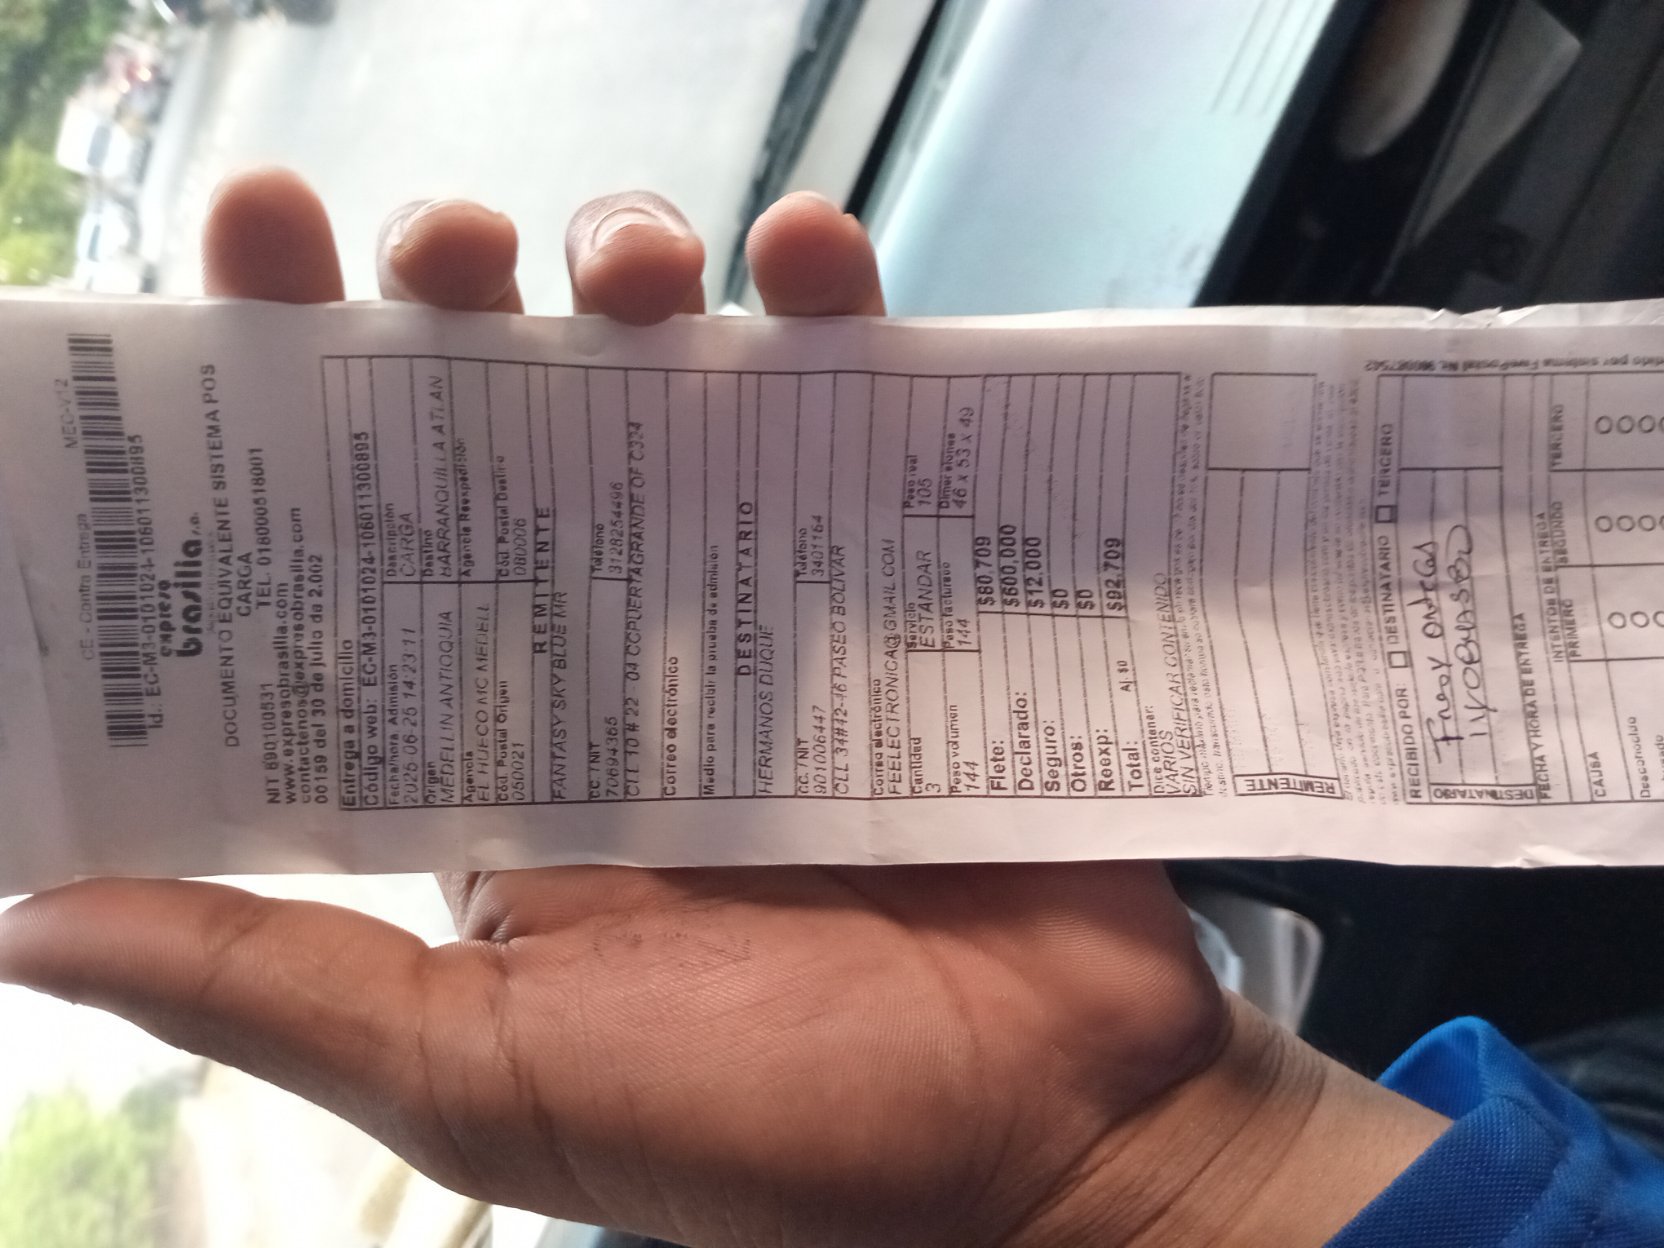 CE - Contra Entrega MEC-V12
Id.: EC-M3-0101024-10601130895
expreso
brasilia s.a.
DOCUMENTO EQUIVALENTE SISTEMA POS
CARGA
NIT 890100531 TEL. 018000518001
www.expresobrasilia.com
contactenos@expresobrasilia.com
00159 del 30 de julio de 2.002
Entrega a domicilio
Código web: EC-M3-0101024-10601130895
Fecha/hora Admisión Descripción
2025-06-25 14:23:11 CARGA
Origen Destino
MEDELLIN ANTIOQUIA BARRANQUILLA ATLAN
Agencia Agencia Reexpedisión
EL HUECO MC MEDELL
Cód. Postal Origen Cód. Postal Destino
050021 080006
REMITENTE
FANTASY SKY BLUE MR
CC. / NIT Teléfono
70694365 3128254496
CLL 10 # 22 - 04 CCPUERTAGRANDE OF C324
Correo electrónico
Medio para recibir la prueba de admisión
DESTINATARIO
HERMANOS DUQUE
CC. / NIT Teléfono
901006447 3401164
CLL 34#42-46 PASEO BOLIVAR
Correo electrónico
FEELECTRONICA@GMAIL.COM
Cantidad Servicio Peso real
3 ESTANDAR 105
Peso volumen Peso facturado Dimensiones
144 144 46 x 53 x 49
Flete: $80,709
Declarado: $600,000
Seguro: $12,000
Otros: $0
Reexp: $0
Total: Aj. $0 $92,709
Dice contener:
VARIOS
SIN VERIFICAR CONTENIDO
REMITENTE
RECIBIDO POR: DESTINATARIO TERCERO
DESTINATARIO
FECHA Y HORA DE ENTREGA
INTENTOS DE ENTREGA
CAUSA PRIMERO SEGUNDO TERCERO
Desconocido